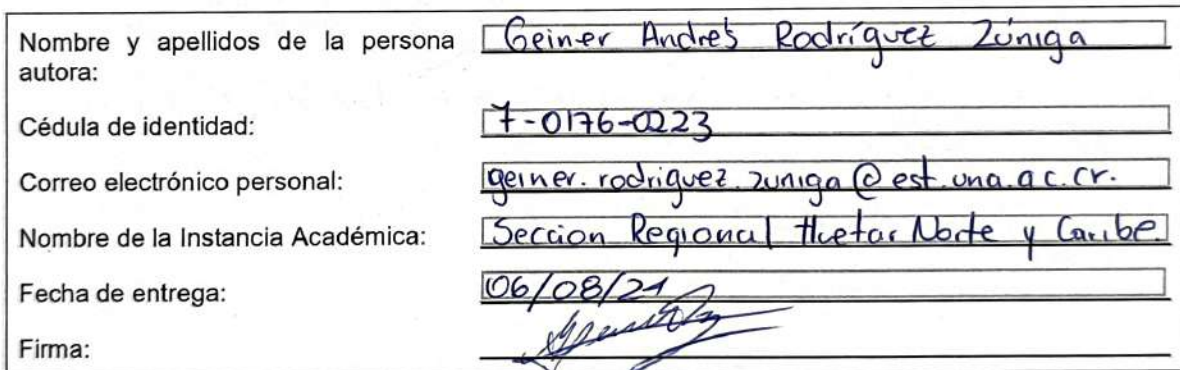 Nombre y apellidos de la persona autora: Geiner Andrés Rodríguez Zúniga
Cédula de identidad: 7-0176-0223
Correo electrónico personal: geiner.rodriguez.zuniga@est.una.ac.cr.
Nombre de la Instancia Académica: Sección Regional Huetar Norte y Caribe.
Fecha de entrega: 06/08/21
Firma: